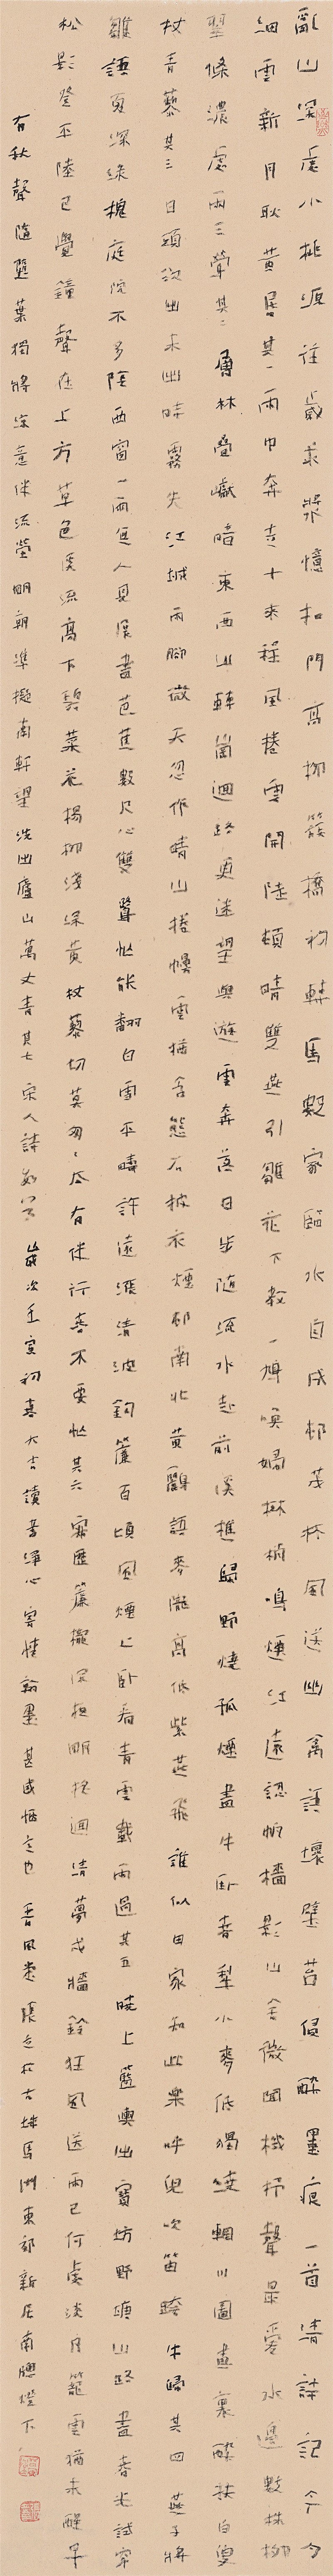 亂山深處小桃源往歲求漿憶扣門高柳簇橋初轉馬數家臨水自成邨茂林風送幽禽語壞壁苔侵醉墨痕一首清詩記今夕
細雲新月耿黃昏其一雨中奔走十來程風捲雲開陡頓晴雙燕引雛花下教一鳩喚婦樹梢鳴煙江遠認帆檣影山舍微聞機杼聲最愛水邊數株柳
翠條濃處兩三鶯其二層林疊巘暗東西山轉崗迴路更迷望與遊雲奔落日步隨流水赴前溪樵歸野燒孤煙盡牛臥春犁小麥低獨繞輞川圖畫裏醉扶白叟
杖青藜其三日頭欲出未出時霧失江城雨腳微天忽作晴山捲幔雲猶含態石披衣煙邨南北黃鸝語麥隴高低紫燕飛誰似田家知此樂呼兒吹笛跨牛歸其四燕子將
雛語夏深綠槐庭院不多陰西窗一雨無人見展盡芭蕉數尺心雙鷺忙能翻白雪平疇許遠漲清波鉤簾百頃風煙上臥看青雲載雨過其五曉上籃輿出寶坊野塘山路盡春光試穿
松影登平陸已覺鐘聲在上方草色溪流高下碧菜花楊柳淺深黃杖藜切莫匆匆去有伴行春不要忙其六寂歷簾櫳深夜明迴清夢戍牆鈴狂風送雨已何處淡月籠雲猶未醒早
有秋聲隨墮葉獨將涼意伴流螢明朝準擬南軒望洗出廬山萬丈青其七宋人詩數首歲次壬寅初春大吉讀書心寄情翰墨甚感悟之也晉風堂張在古城馬洲東部新居南牕燈下